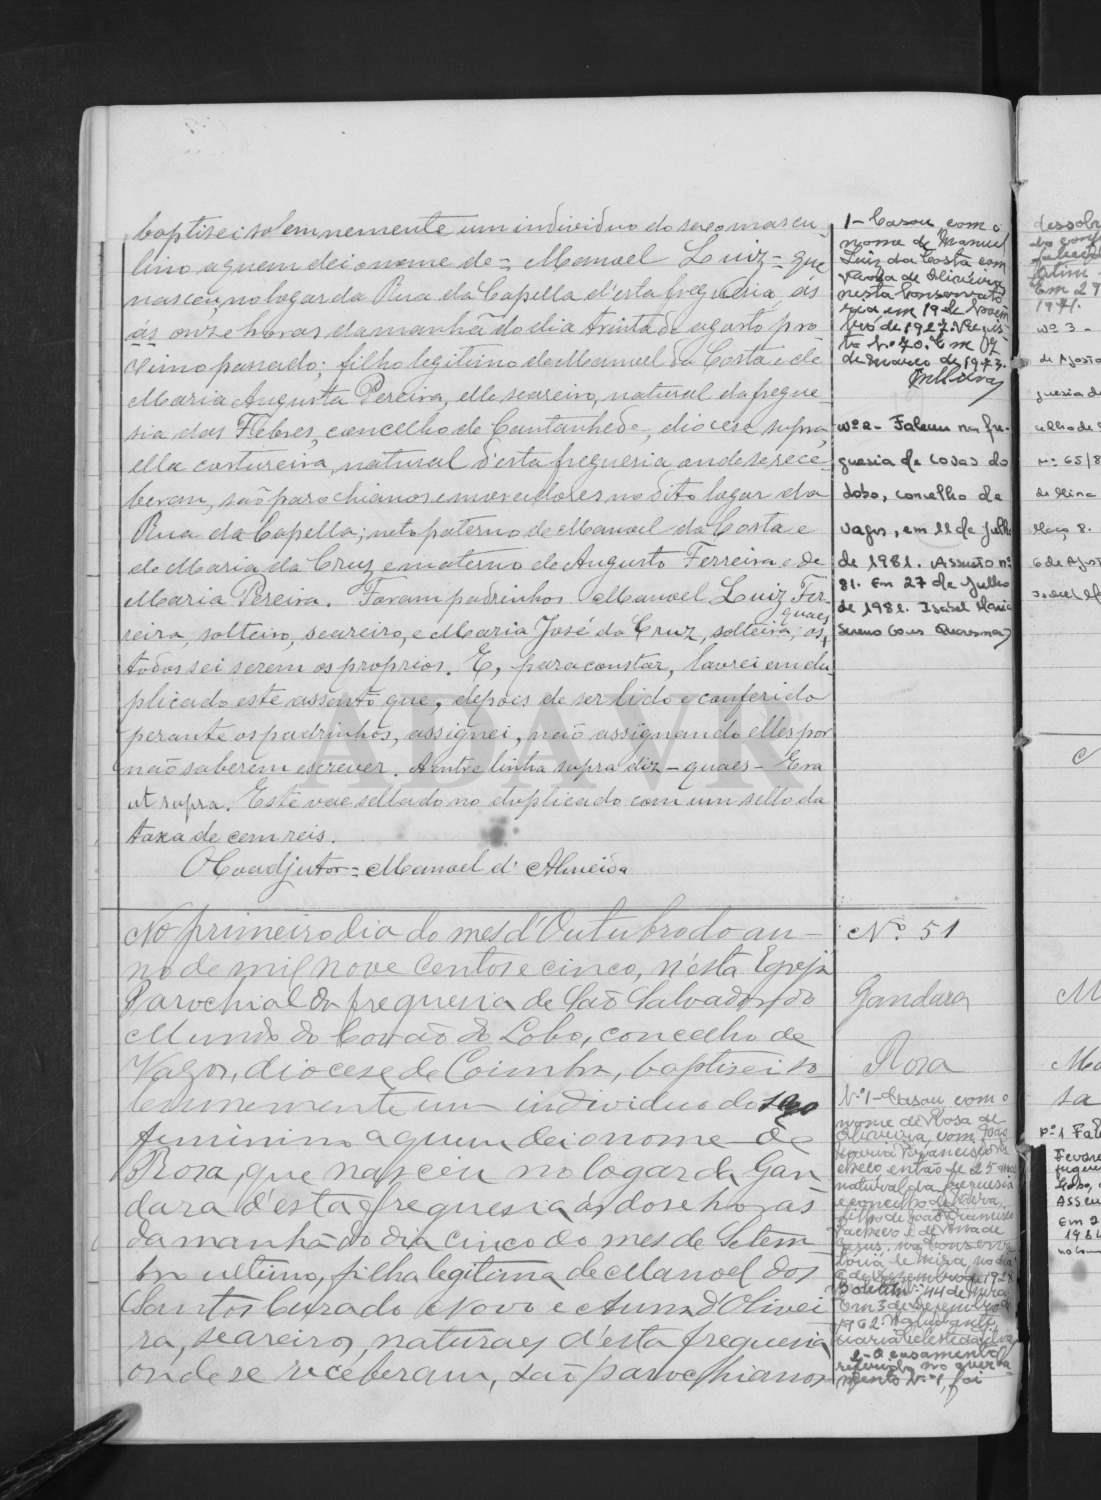 baptisei solemnemente um individuo do sexo mascu-
lino, a quem dei o nome de = Manoel Luiz = que
nasceu, no logar da Rua da Capella d'esta freguesia, ás
ás onze horas da manhã do dia trinta de agosto pro-
ximo passado; filho legitimo de Manuel da Costa e de
Maria Augusta Pereira, elle seareiro, natural da fregue-
sia das Febres, concelho de Cantanhede, diocese supra,
ella costureira, natural d'esta freguesia onde se rece-
beram, são parochianos e moradores no dito logar da
Rua da Capella; neto paterno de Manoel da Costa e
de Maria da Cruz, e materno de Augusto Ferreira e de
Maria Pereira. Foram padrinhos Manoel Luiz Fer-
reira, solteiro, seareiro, e Maria José da Cruz, solteira, os quaes
todos sei serem os proprios. E, para constar, lavrei em du-
plicado este assento que, depois de ser lido e conferido
perante os padrinhos, assignei, não assignando elles por
não saberem escrever. A entre linha supra diz - quaes - Era
ut supra. Este vae sellado no duplicado com um sello da
taxa de cem reis.
O Coadjutor = Manoel d'Almeida
1- Casou com o
nome de Manuel
Luiz da Costa com
de Oliveira
nesta Conservató-
ria em 19 de Novem-
bro de 1927.
Nº 70. Em
de Março de 1973.
Nº 2 - Faleceu na fre-
guesia de Covão do
Lobo, concelho de
Vagos, em 11 de Julho
de 1981. Assento nº
81. Em 27 de Julho
de 1981. Isabel Maria
ADAVR
No primeiro dia do mes d'Outubro do an-
no de mil nove centos e cinco, n'esta Egreja
Parochial da freguesia de São Salvador do
Mundo do Covão do Lobo, concelho de
Vagos, diocese de Coimbra, baptisei so-
lemnemente um individuo do sexo
feminino a quem dei o nome de
Rosa, que nasceu no logar da Gan-
dara d'esta freguesia ás dose horas
da manhã do dia cinco do mes de Setem-
bro ultimo, filha legitima de Manoel dos
Santos Curado Novo e Anna d'Olivei-
ra, seareiros, naturaes d'esta freguesia
onde se receberam, são parochianos
Nº 51
Gandara
Rosa
Nº 1 - Casou com o
nome de Rosa de
Oliveira, com João
Maria Francisco
então de 25 anos
natural da freguesia
e concelho de Mira,
filho de João Francisco
Pacheco e de Rosa de
Jesus, na Conserva-
tória de Mira, no dia
de Dezembro de 192
Boletim Nº 44 de Mira
Em 3 de Dezembro de
1962. O ajudante,
Maria Celeste da Silva
2- O casamento
referido no averba-
mento Nº 1, foi
Nº 3 -
de Agosto
nº 65/8
de Mira
1971.
Em 27
Em 2